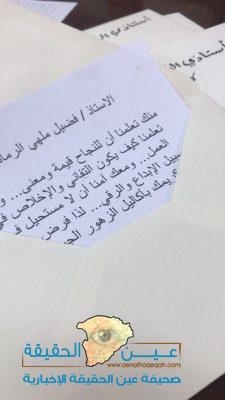 أستاذي
أستاذي ال
الاستاذ / فضيل ملهي الرما
منك تعلمنا أن للنجاح قيمة ومعنى... و
تعلمنا كيف يكون التفاني والإخلاص في
العمل... ومعك آمنا أن لا مستحيل ف
سبيل الإبداع والرقي... لذا فرض
يمك بأكاليل الزهور الج
عين الحقيقة
www.aenalhaqeqah.com
صحيفة عين الحقيقة الإخبارية